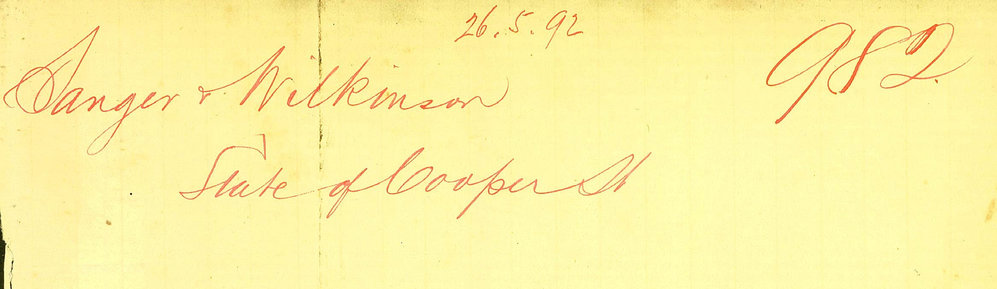 26.5.92
982
Sanger & Wilkinson
State of Cooper St